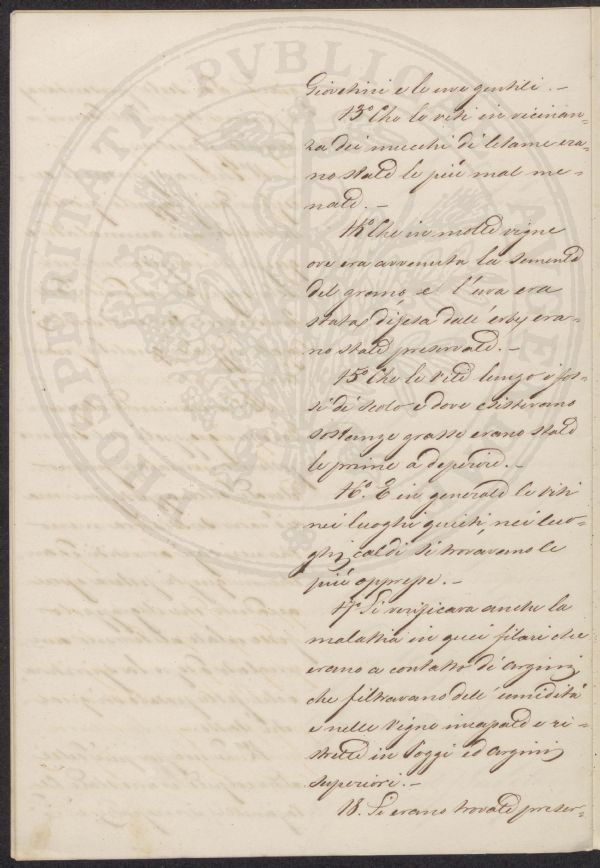 Giovetini e le uve gentili. –
13º Che le viti in vicinan=
za dei mucchi di letame era=
no state le più mal me=
nate. –
14º Che in molte vigne
ove era avvenuta la semente
del grano, e l'uva era
stata difesa dall' erbe, era=
no state preservate. –
15º Che le viti lungo i fos=
si di scolo e dove esistevano
sostanze grasse erano state
le prime a deperire. –
16º. E in generale le viti
nei luoghi quieti, nei luo=
ghi caldi si trovavano le
più oppresse. –
17º Si verificava anche la
malattia in quei filari che
erano a contatto di argini
che filtravano dell' umidità
e nelle vigne incassate e ri=
strette in poggi ed argini
superiori. –
18. Si erano trovate preser=
PROSPERITATI PVBLICAE